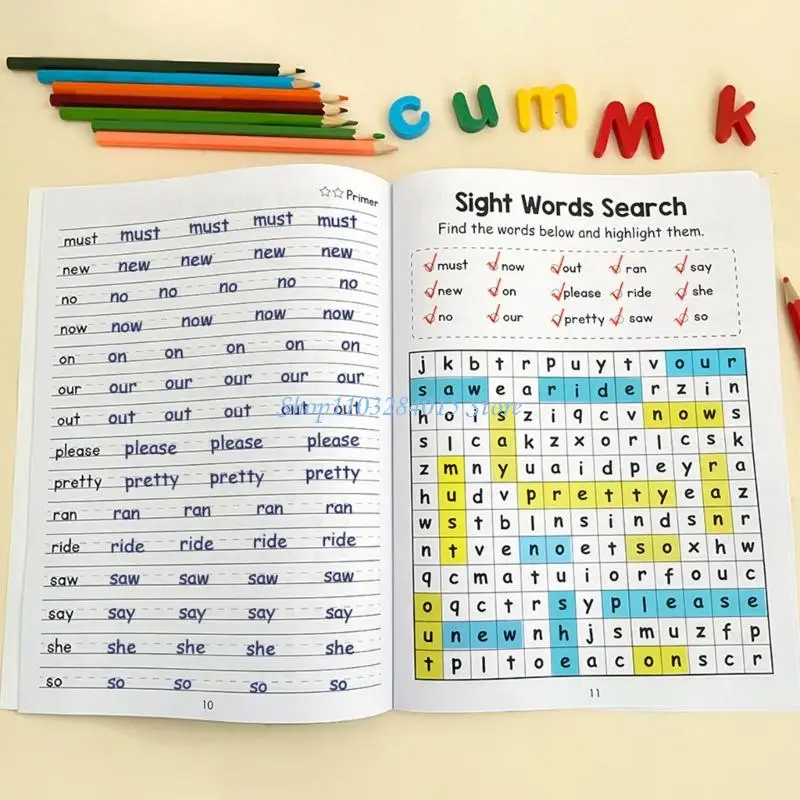 c u m M k
Primer
must must must must must
new new new new new
no no no no no
now now now now now
on on on on on
our our our our our
out out out out out
please please please please
pretty pretty pretty pretty
ran ran ran ran ran
ride ride ride ride ride
saw saw saw saw saw
say say say say say
she she she she she
so so so so so
10
Sight Words Search
Find the words below and highlight them.
must now out ran say
new on please ride she
no our pretty saw so
j k b t r p u y t v o u r
s a w e a r i d e r z i n
h o i s z i q c v n o w s
s l c a k z x o r l c s k
z m n y u a i d p e y r a
h u d v p r e t t y e a z
w s t b l n s i n d s n r
n t v e n o e t s o x h w
q c m a t u i o r f o u c
o q c t r s y p l e a s e
u n e w n h j s m u z f p
t p l t o e a c o n s c r
11
Shop1103284015 Store